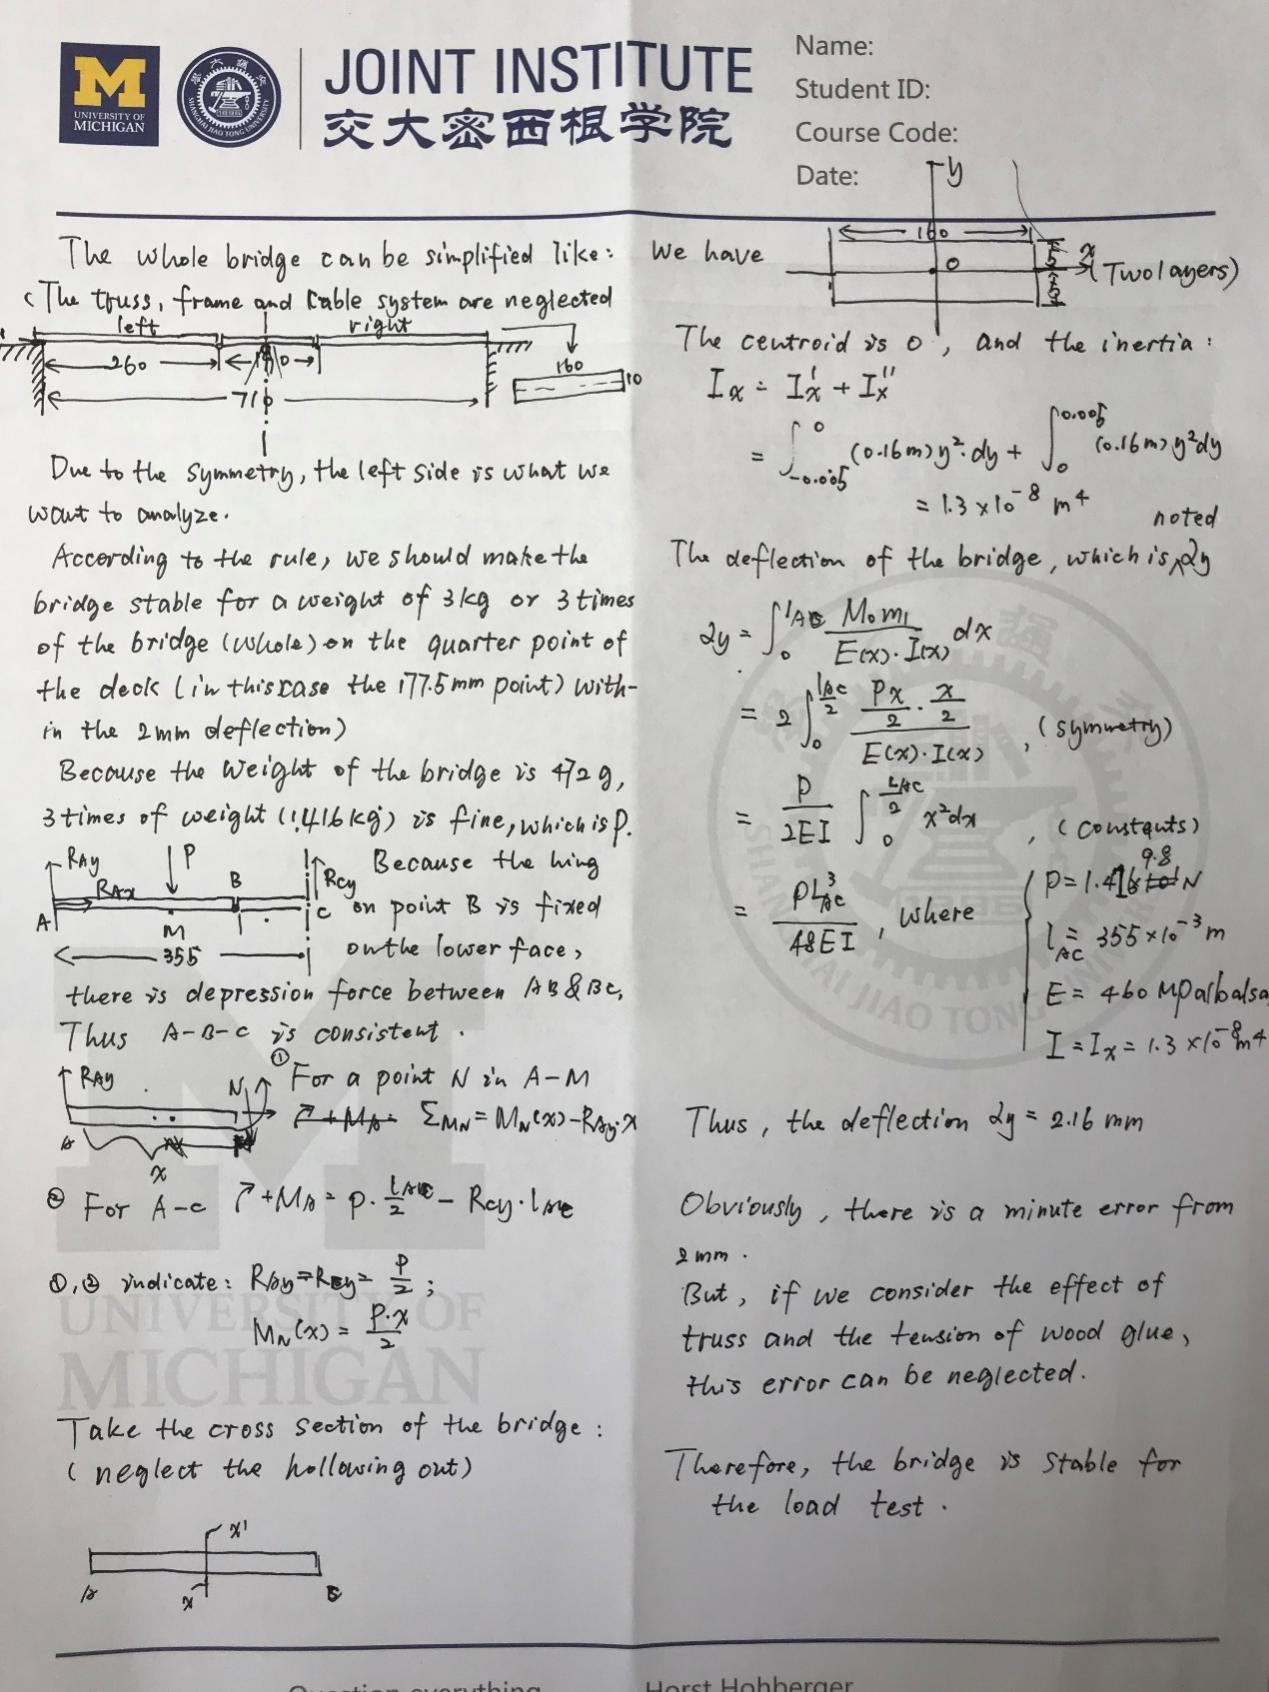 M
UNIVERSITY OF
MICHIGAN
SHANGHAI JIAO TONG UNIVERSITY
JOINT INSTITUTE
交大密西根学院
Name:
Student ID:
Course Code:
Date:
The whole bridge can be simplified like:
(The truss, frame and cable system are neglected
left
right
260
710
160
10
Due to the symmetry, the left side is what we
want to analyze.
According to the rule, we should make the
bridge stable for a weight of 3kg or 3 times
of the bridge (whole) on the quarter point of
the deck (in this case the 177.5mm point) with-
in the 2mm deflection)
Because the weight of the bridge is 472g,
3 times of weight (1.416kg) is fine, which is P.
RAy
P
RAx
B
Rcy
A
M
C
355
Because the hing
on point B is fixed
on the lower face,
there is depression force between AB&BC,
Thus A-B-C is consistent.
RAy
N
A
x
① For a point N in A-M
ΣMN = MN(x) - RAy·x
② For A-C +MA = P· lAC/2 - Rcy·lAC
①,② indicate: RAy=Rcy= P/2 ;
MN(x) = P·x/2
Take the cross section of the bridge:
( neglect the hollowing out)
x'
A
x
B
We have
y
160
0
x
(Two layers)
The centroid is 0, and the inertia:
Ix = Ix' + Ix''
= ∫_{-0.005}^{0} (0.16m)y²·dy + ∫_{0}^{0.005} (0.16m)y²dy
= 1.3×10⁻⁸ m⁴
The deflection of the bridge, which is noted δy
δy = ∫_{0}^{lAC} M₀m₁/(E(x)·I(x)) dx
= 2∫_{0}^{lAC/2} (Px/2 · x/2)/(E(x)·I(x)) , (symmetry)
= P/2EI ∫_{0}^{LAC/2} x²dx , (constants)
= PL³AC/48EI , where
P=1.416×9.8 N
lAC = 355×10⁻³m
E = 460 MPa(balsa
I = Ix = 1.3×10⁻⁸m⁴
Thus, the deflection δy = 2.16 mm
Obviously, there is a minute error from
2mm.
But, if we consider the effect of
truss and the tension of wood glue,
this error can be neglected.
Therefore, the bridge is stable for
the load test.
M
UNIVERSITY OF
MICHIGAN
Question everything
Horst Hohberger